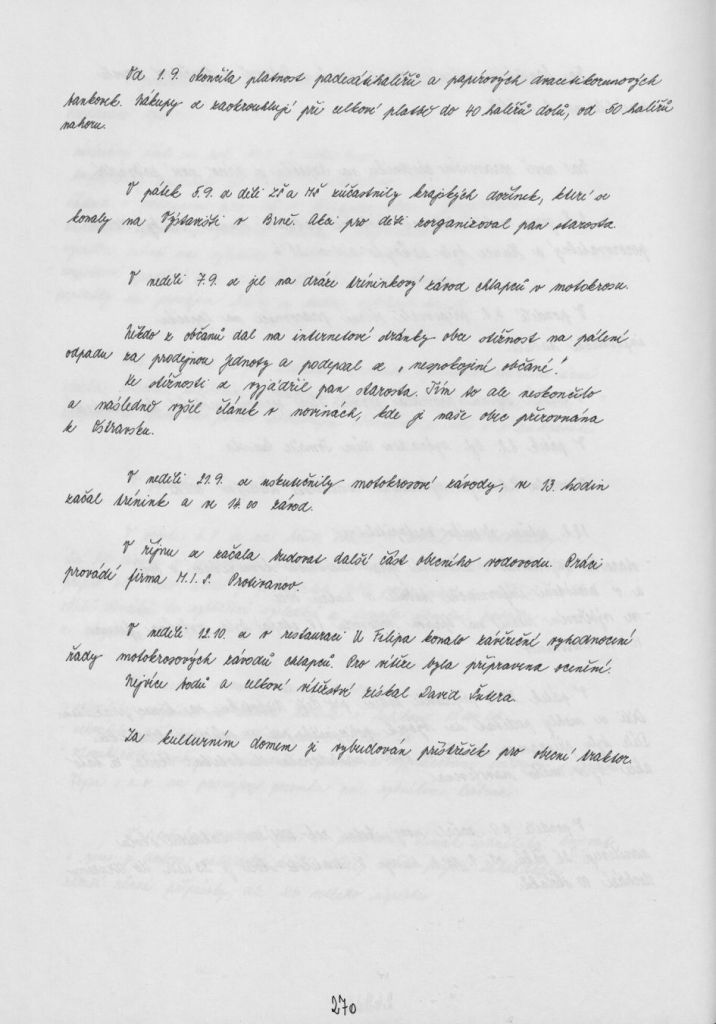 Od 1.9. skončila platnost padesátihaléřů a papírových dvacetikorunových
bankovek. Nákupy se zaokrouhlují při celkové platbě do 40 haléřů dolů, od 50 haléřů
nahoru.
V pátek 5.9. se děti ZŠ a MŠ zúčastnily krajských dožínek, které se
konaly na Výstavišti v Brně. Akci pro děti zorganizoval pan starosta.
V neděli 7.9. se jel na dráze tréninkový závod chlapců v motokrosu.
Někdo z občanů dal na internetové stránky obce stížnost na pálení
odpadu za prodejnou Jednoty a podepsal se „nespokojení občané".
Ke stížnosti se vyjádřil pan starosta. Tím to ale neskončilo
a následně vyšel článek v novinách, kde je naše obec přirovnána
k Ostravsku.
V neděli 21.9. se uskutečnily motokrosové závody, ve 13. hodin
začal trénink a ve 14.00 závod.
V říjnu se začala budovat další část obecního vodovodu. Práci
provádí firma M.I.S. Protivanov.
V neděli 12.10. se v restauraci U Filipa konalo závěreční vyhodnocení
řady motokrosových závodů chlapců. Pro vítěze byla připravena ocenění.
Nejvíce bodů a celkové vítězství získal David
Za kulturním domem je vybudován přístřešek pro obecní traktor.
270